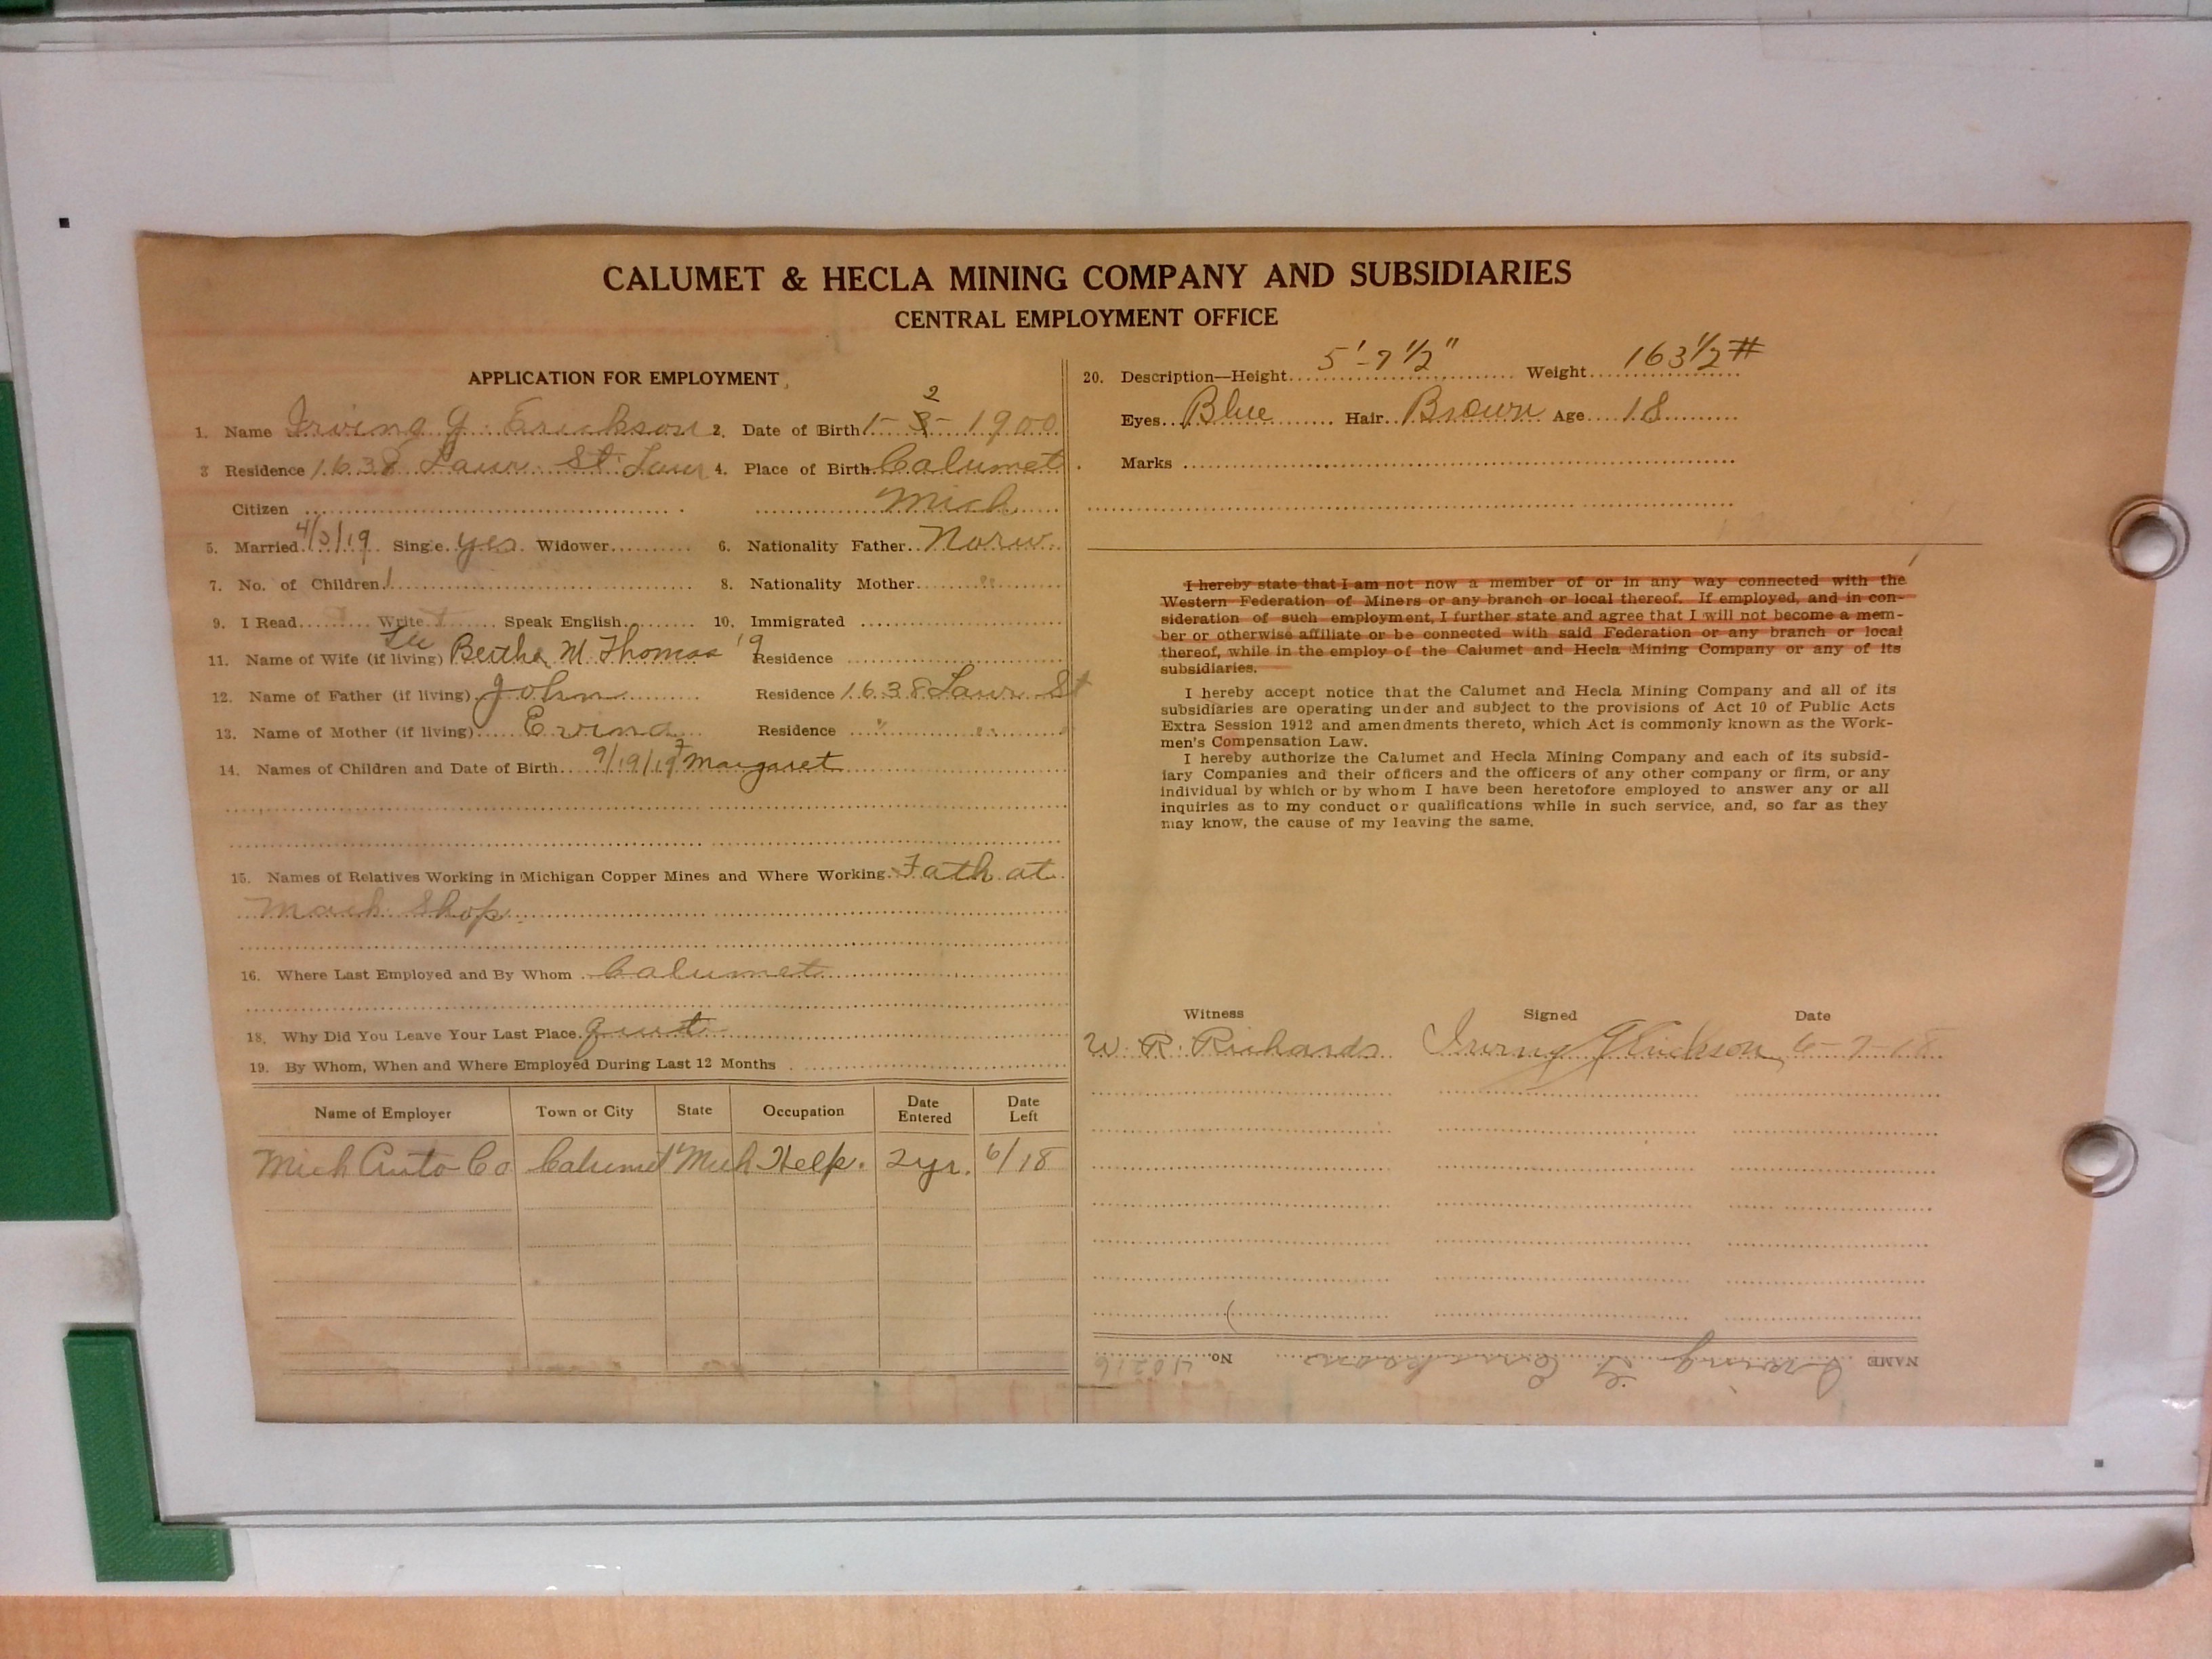 CALUMET & HECLA MINING COMPANY AND SUBSIDIARIES
CENTRAL EMPLOYMENT OFFICE
APPLICATION FOR EMPLOYMENT
1. Name Irving G. Erickson 2. Date of Birth 1-8-1900 2
3 Residence 1638 Laur. St. Laur 4. Place of Birth Calumet
Citizen Mich
5. Married 4/3/19 Single yes Widower 6. Nationality Father Norw.
7. No. of Children 1 8. Nationality Mother "
9. I Read Write Speak English 10. Immigrated
11. Name of Wife (if living) Bertha M. Thomas '9 Residence
12. Name of Father (if living) John Residence 1638 Laur St
13. Name of Mother (if living) Evina Residence " "
14. Names of Children and Date of Birth 9/19/19 Margaret
15. Names of Relatives Working in Michigan Copper Mines and Where Working. Fath. at
Mach. Shop.
16. Where Last Employed and By Whom Calumet
18. Why Did You Leave Your Last Place. quit
19. By Whom, When and Where Employed During Last 12 Months
Name of Employer Town or City State Occupation Date Entered Date Left
Mich Auto Co Calumet Mich Help. 2yr. 6/18
20. Description—Height 5'-7 1/2" Weight 163 1/2 #
Eyes Blue Hair Brown Age 18
Marks
I hereby state that I am not now a member of or in any way connected with the
Western Federation of Miners or any branch or local thereof. If employed, and in con-
sideration of such employment, I further state and agree that I will not become a mem-
ber or otherwise affiliate or be connected with said Federation or any branch or local
thereof, while in the employ of the Calumet and Hecla Mining Company or any of its
subsidiaries.
I hereby accept notice that the Calumet and Hecla Mining Company and all of its
subsidiaries are operating under and subject to the provisions of Act 10 of Public Acts
Extra Session 1912 and amendments thereto, which Act is commonly known as the Work-
men's Compensation Law.
I hereby authorize the Calumet and Hecla Mining Company and each of its subsid-
iary Companies and their officers and the officers of any other company or firm, or any
individual by which or by whom I have been heretofore employed to answer any or all
inquiries as to my conduct or qualifications while in such service, and, so far as they
may know, the cause of my leaving the same.
Witness Signed Date
W. R. Richards Irving G Erickson 6-7-18
NAME Irving G. Erickson No. 40216